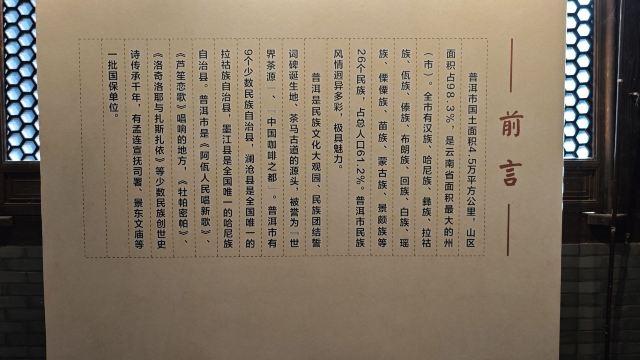 前言
普洱市国土面积4.5万平方公里，山区
面积占98.3%，是云南省面积最大的州
（市）。全市有汉族、哈尼族、彝族、拉祜
族、佤族、傣族、布朗族、回族、白族、瑶
族、傈僳族、苗族、蒙古族、景颇族等
26个民族，占总人口61.2%。普洱市民族
风情迥异多彩，极具魅力。
普洱是民族文化大观园、民族团结誓
词碑诞生地、茶马古道的源头，被誉为“世
界茶源”、“中国咖啡之都”。普洱市有
9个少数民族自治县，澜沧县是全国唯一的
拉祜族自治县，墨江县是全国唯一的哈尼族
自治县。普洱市是《阿佤人民唱新歌》、
《芦笙恋歌》唱响的地方，《牡帕密帕》、
《洛奇洛耶与扎斯扎依》等少数民族创世史
诗传承千年，有孟连宣抚司署、景东文庙等
一批国保单位。